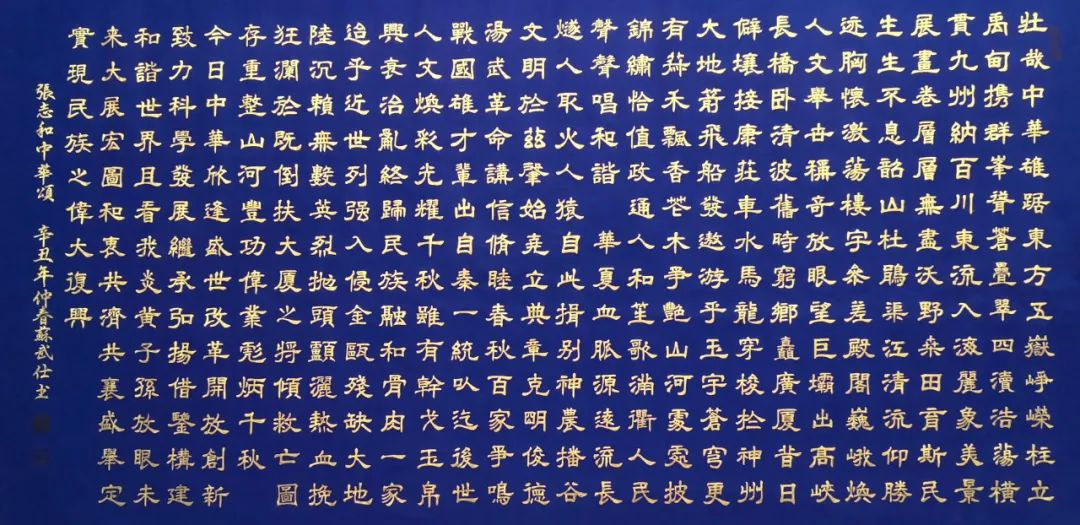 壯哉中華雄踞東方五嶽崢嶸柱立
禹甸携群峯聳蒼疊翠四瀆浩蕩橫
貫九州納百川東流入海麗象美景
展畫卷層層無盡沃野桑田育斯民
生生不息韶山杜鵑渠江清流仰勝
迹胸懷激蕩樓宇參差殿閣巍峨煥
人文舉世稱奇放眼望巨壩出高峽
長橋卧清波舊時窮鄉矗廣厦昔日
僻壤接康莊車水馬龍穿梭於神州
大地箭飛船發遨游乎玉宇蒼穹更
有禾飄香花木爭艷山河處處披
錦繡恰值政通人和笙歌滿衢人民
聲聲唱和諧 華夏血脈源遠流長
燧人取火人猿自此揖別神農播谷
文明於兹肇始堯立典章克明俊德
湯武革命講信脩睦春秋百家爭鳴
戰國雄才輩出自秦一統以迄後世
人文煥彩光耀千秋雖有幹戈玉帛
興衰治亂終歸民族融和骨肉一家
迨乎近世列强入侵金甌殘缺大地
陸沉賴無數英烈抛頭顱灑熱血挽
狂瀾於既倒扶大厦之將傾救亡圖
存重整山河豐功偉業彪炳千秋
今日中華欣逢盛世改革開放創新
致力科學發展繼承弘揚借鑒構建
和諧世界且看我炎黃子孫放眼未
来大展宏圖和衷共濟共襄盛舉定
實現民族之偉大復興
張志和中華頌 辛丑年仲春蘇武仕書